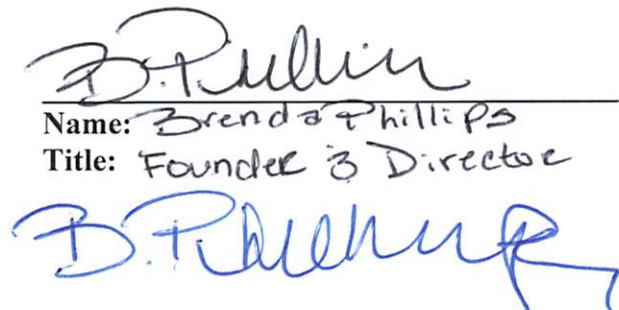 B. Phillips
Name: Brenda Phillips
Title: Founder & Director
B. Phillips